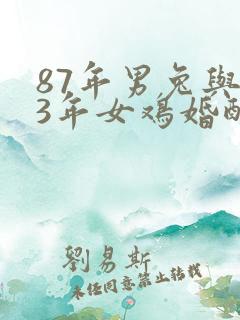 87年男兔與
3年女鸡婚配
劉易斯
未经同意禁止转载